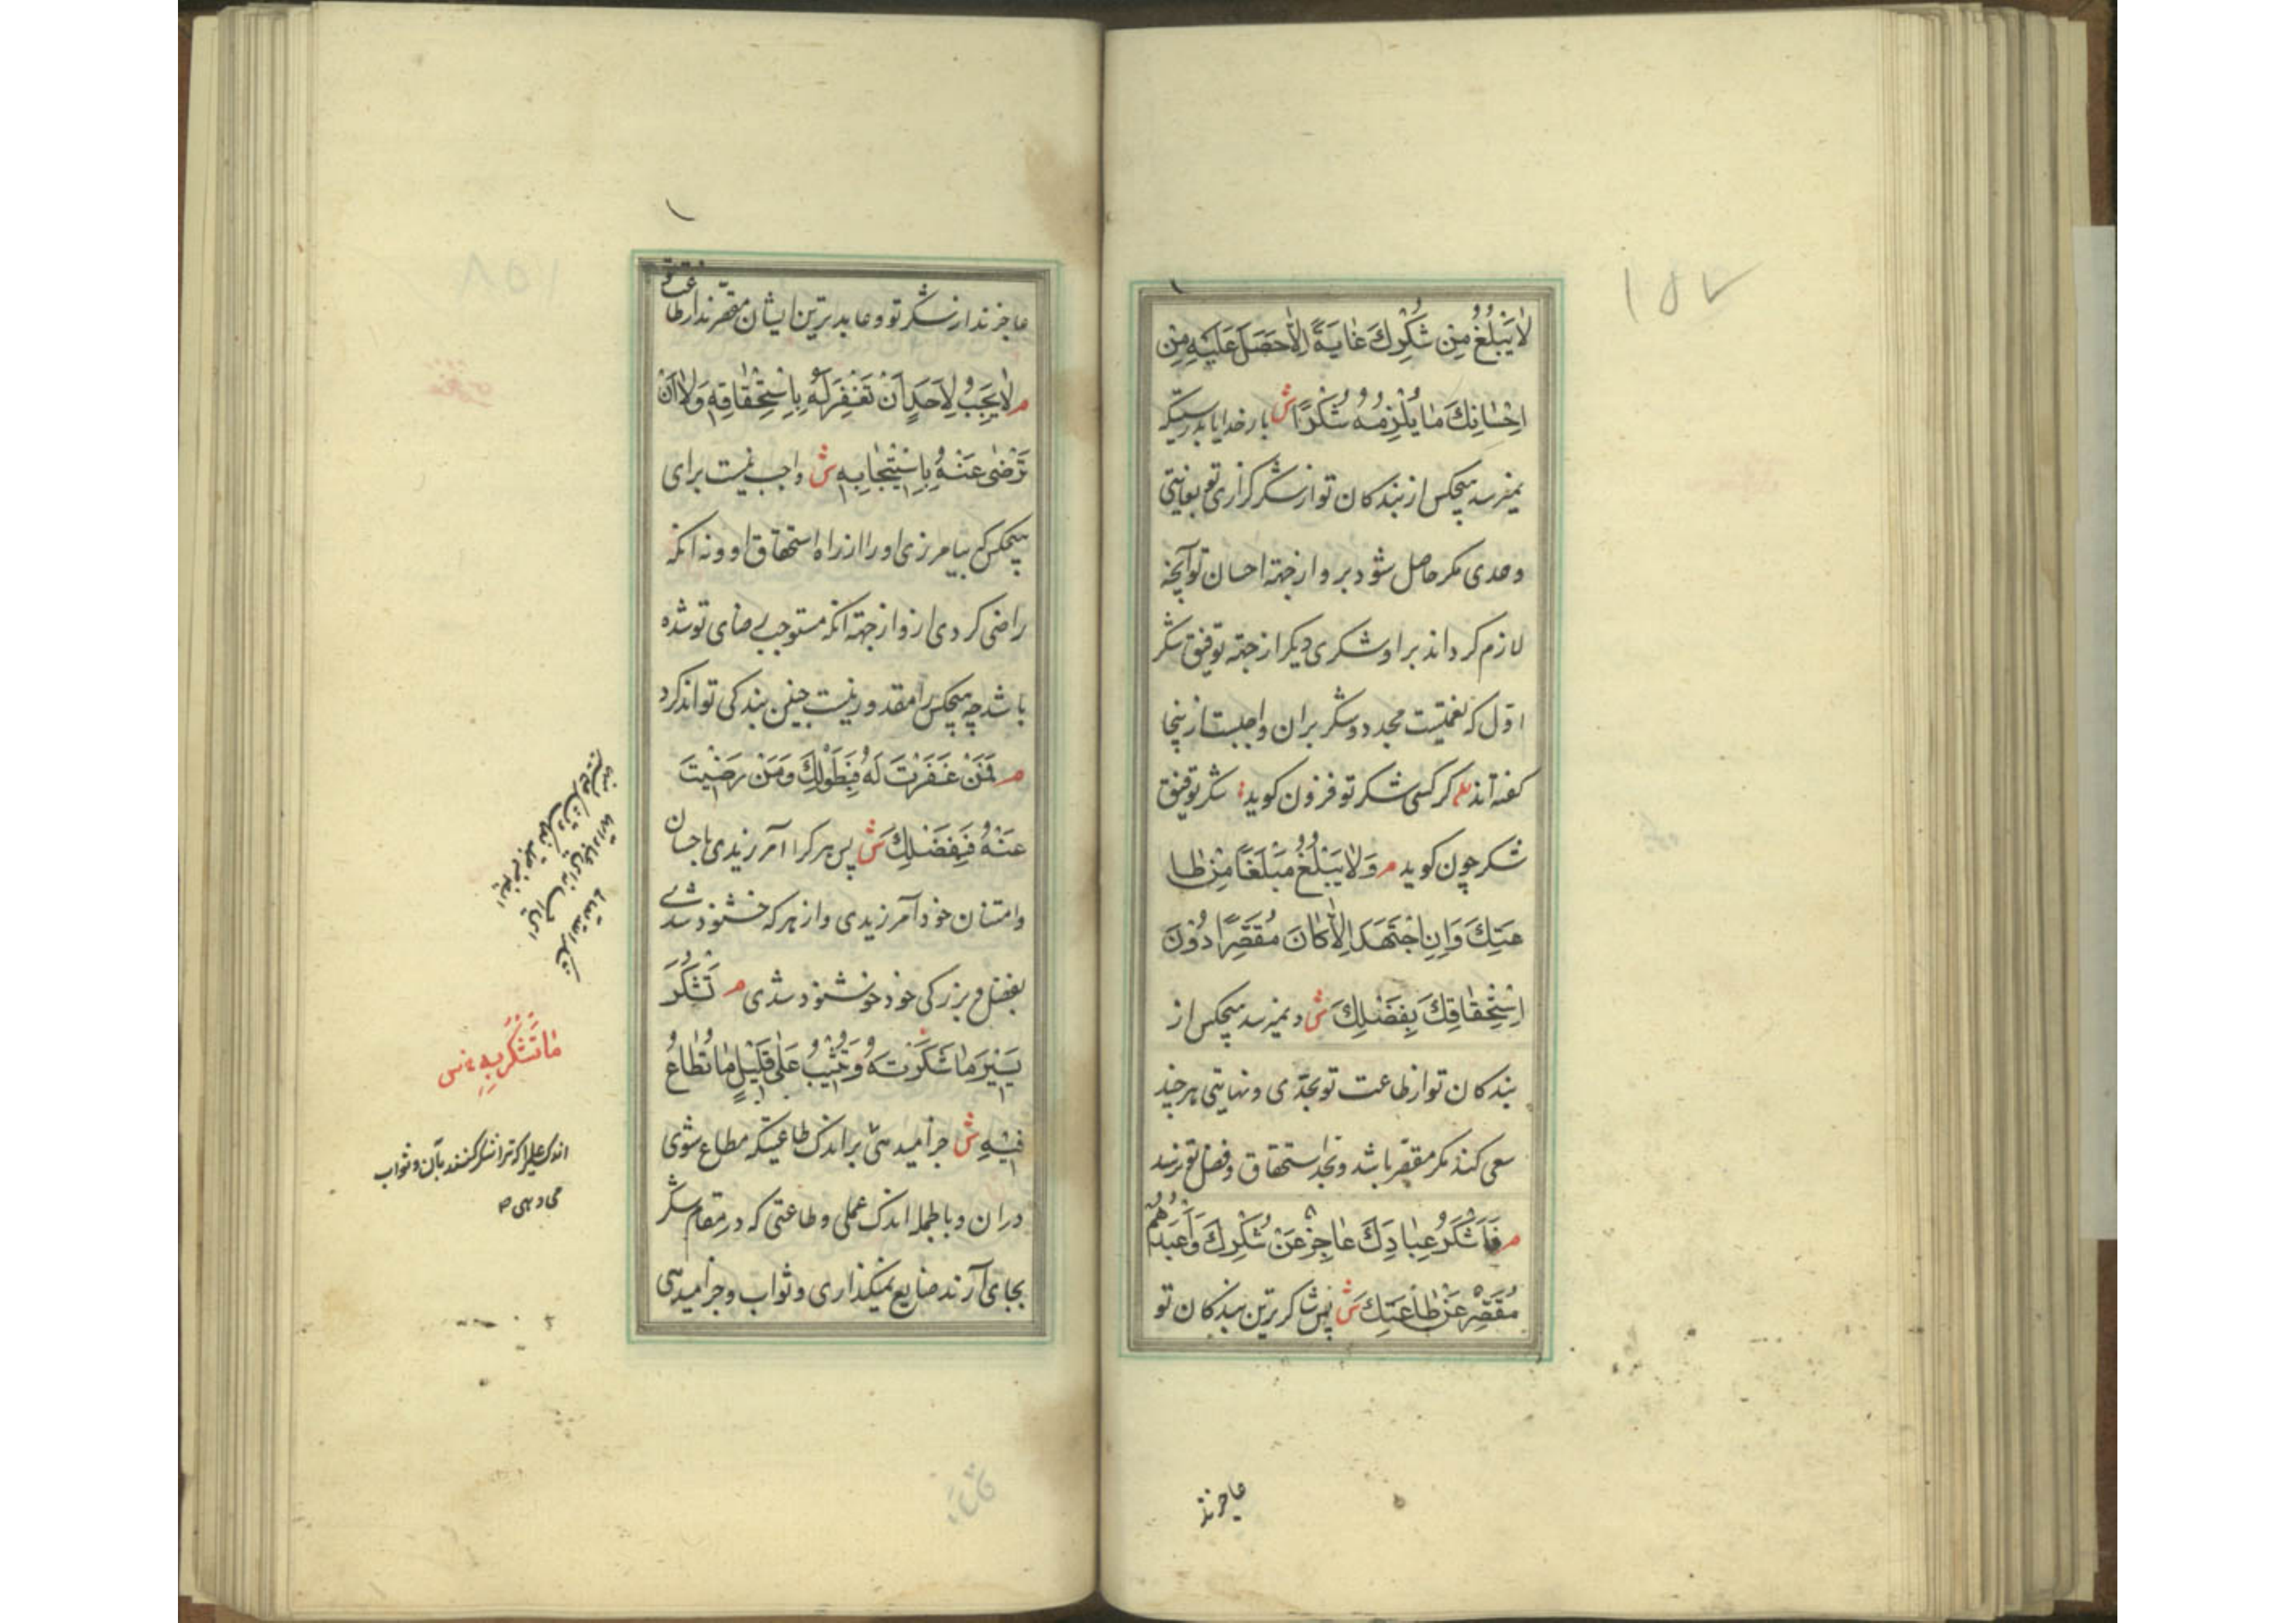 ١٥٧
لا يَبْلُغُ مِنْ شُكْرِكَ غايَةً اِلّا حَصَلَ عَلَيْهِ مِنْ
اِحْسانِكَ ما يُلْزِمُهُ شُكْرًا ش بار خدایا بدرستیکه
نمیرسد هیچکس از بندکان تو از شکر کزاری تو بغایتی
و حدی مکر حاصل شود برو از جهة احسان تو آنچه
لازم کرداند بر او شکری دیکر از جهة توفیق شکر
اوّل که نعمتیست مجدد و شکر بران واجبست ازینجا
کفته‌اند کر کسی شکر تو فزون کوید شکر توفیق
شکر چون کوید م وَلا يَبْلُغُ مَبْلَغًا مِنْ طا
عَتِكَ وَاِنِ اجْتَهَدَ اِلّا كانَ مُقَصِّرًا دُوْنَ
اِسْتِحْقاقِكَ بِفَضْلِكَ ش و نمیرسد هیچکس از
بندکان تو از طاعت تو بحدّی و نهایتی هر چند
سعی کند مکر مقصّر باشد و بحد استحقاق و فضل تو نرسد
م فَاَشْكَرُ عِبادِكَ عاجِزٌ عَنْ شُكْرِكَ وَاَعْبَدُهُمْ
مُقَصِّرٌ عَنْ طاعَتِكَ ش پس شاکرترین بندکان تو
عاجزند
عاجزند از شکر تو و عابدترین ایشان مقصّرند از طاعت
م لا يَجِبُ لِاَحَدٍ اَنْ تَغْفِرَ لَهُ بِاسْتِحْقاقِهِ وَلا اَنْ
تَرْضى عَنْهُ بِاسْتِيْجابِهِ ش واجب نیست برای
هیچکس که بیامرزی او را از راه استحقاق او و نه آنکه
راضی کردی ازو از جهة آنکه مستوجب رضای تو شده
باشد چه هیچکس را مقدور نیست چنین بندکی تواند کرد
م فَمَنْ غَفَرْتَ لَهُ فَبِطَوْلِكَ وَمَنْ رَضِيْتَ
عَنْهُ فَبِفَضْلِكَ ش پس هر کرا آمرزیدی باحسان
و امتنان خود آمرزیدی و از هر که خشنود شدی
بفضل و بزرکی خود خوشنود شدی م تَشْكُرُ
يَسِيْرَ ما شَكَرْتَهُ وَتُثِيْبُ عَلى قَلِيْلِ ما تُطاعُ
فِيْهِ ش جزا میدهی بر اندک طاعتیکه مطاع شوی
دران و بالجمله اندک عملی و طاعتی که در مقام شکر
بجای آرند ضایع نمیکذاری و ثواب و جزا میدهی
ما تُشْكَرُ بِهِ
اندک عملی را که ترا شکر کنند بآن و ثواب
می‌دهی